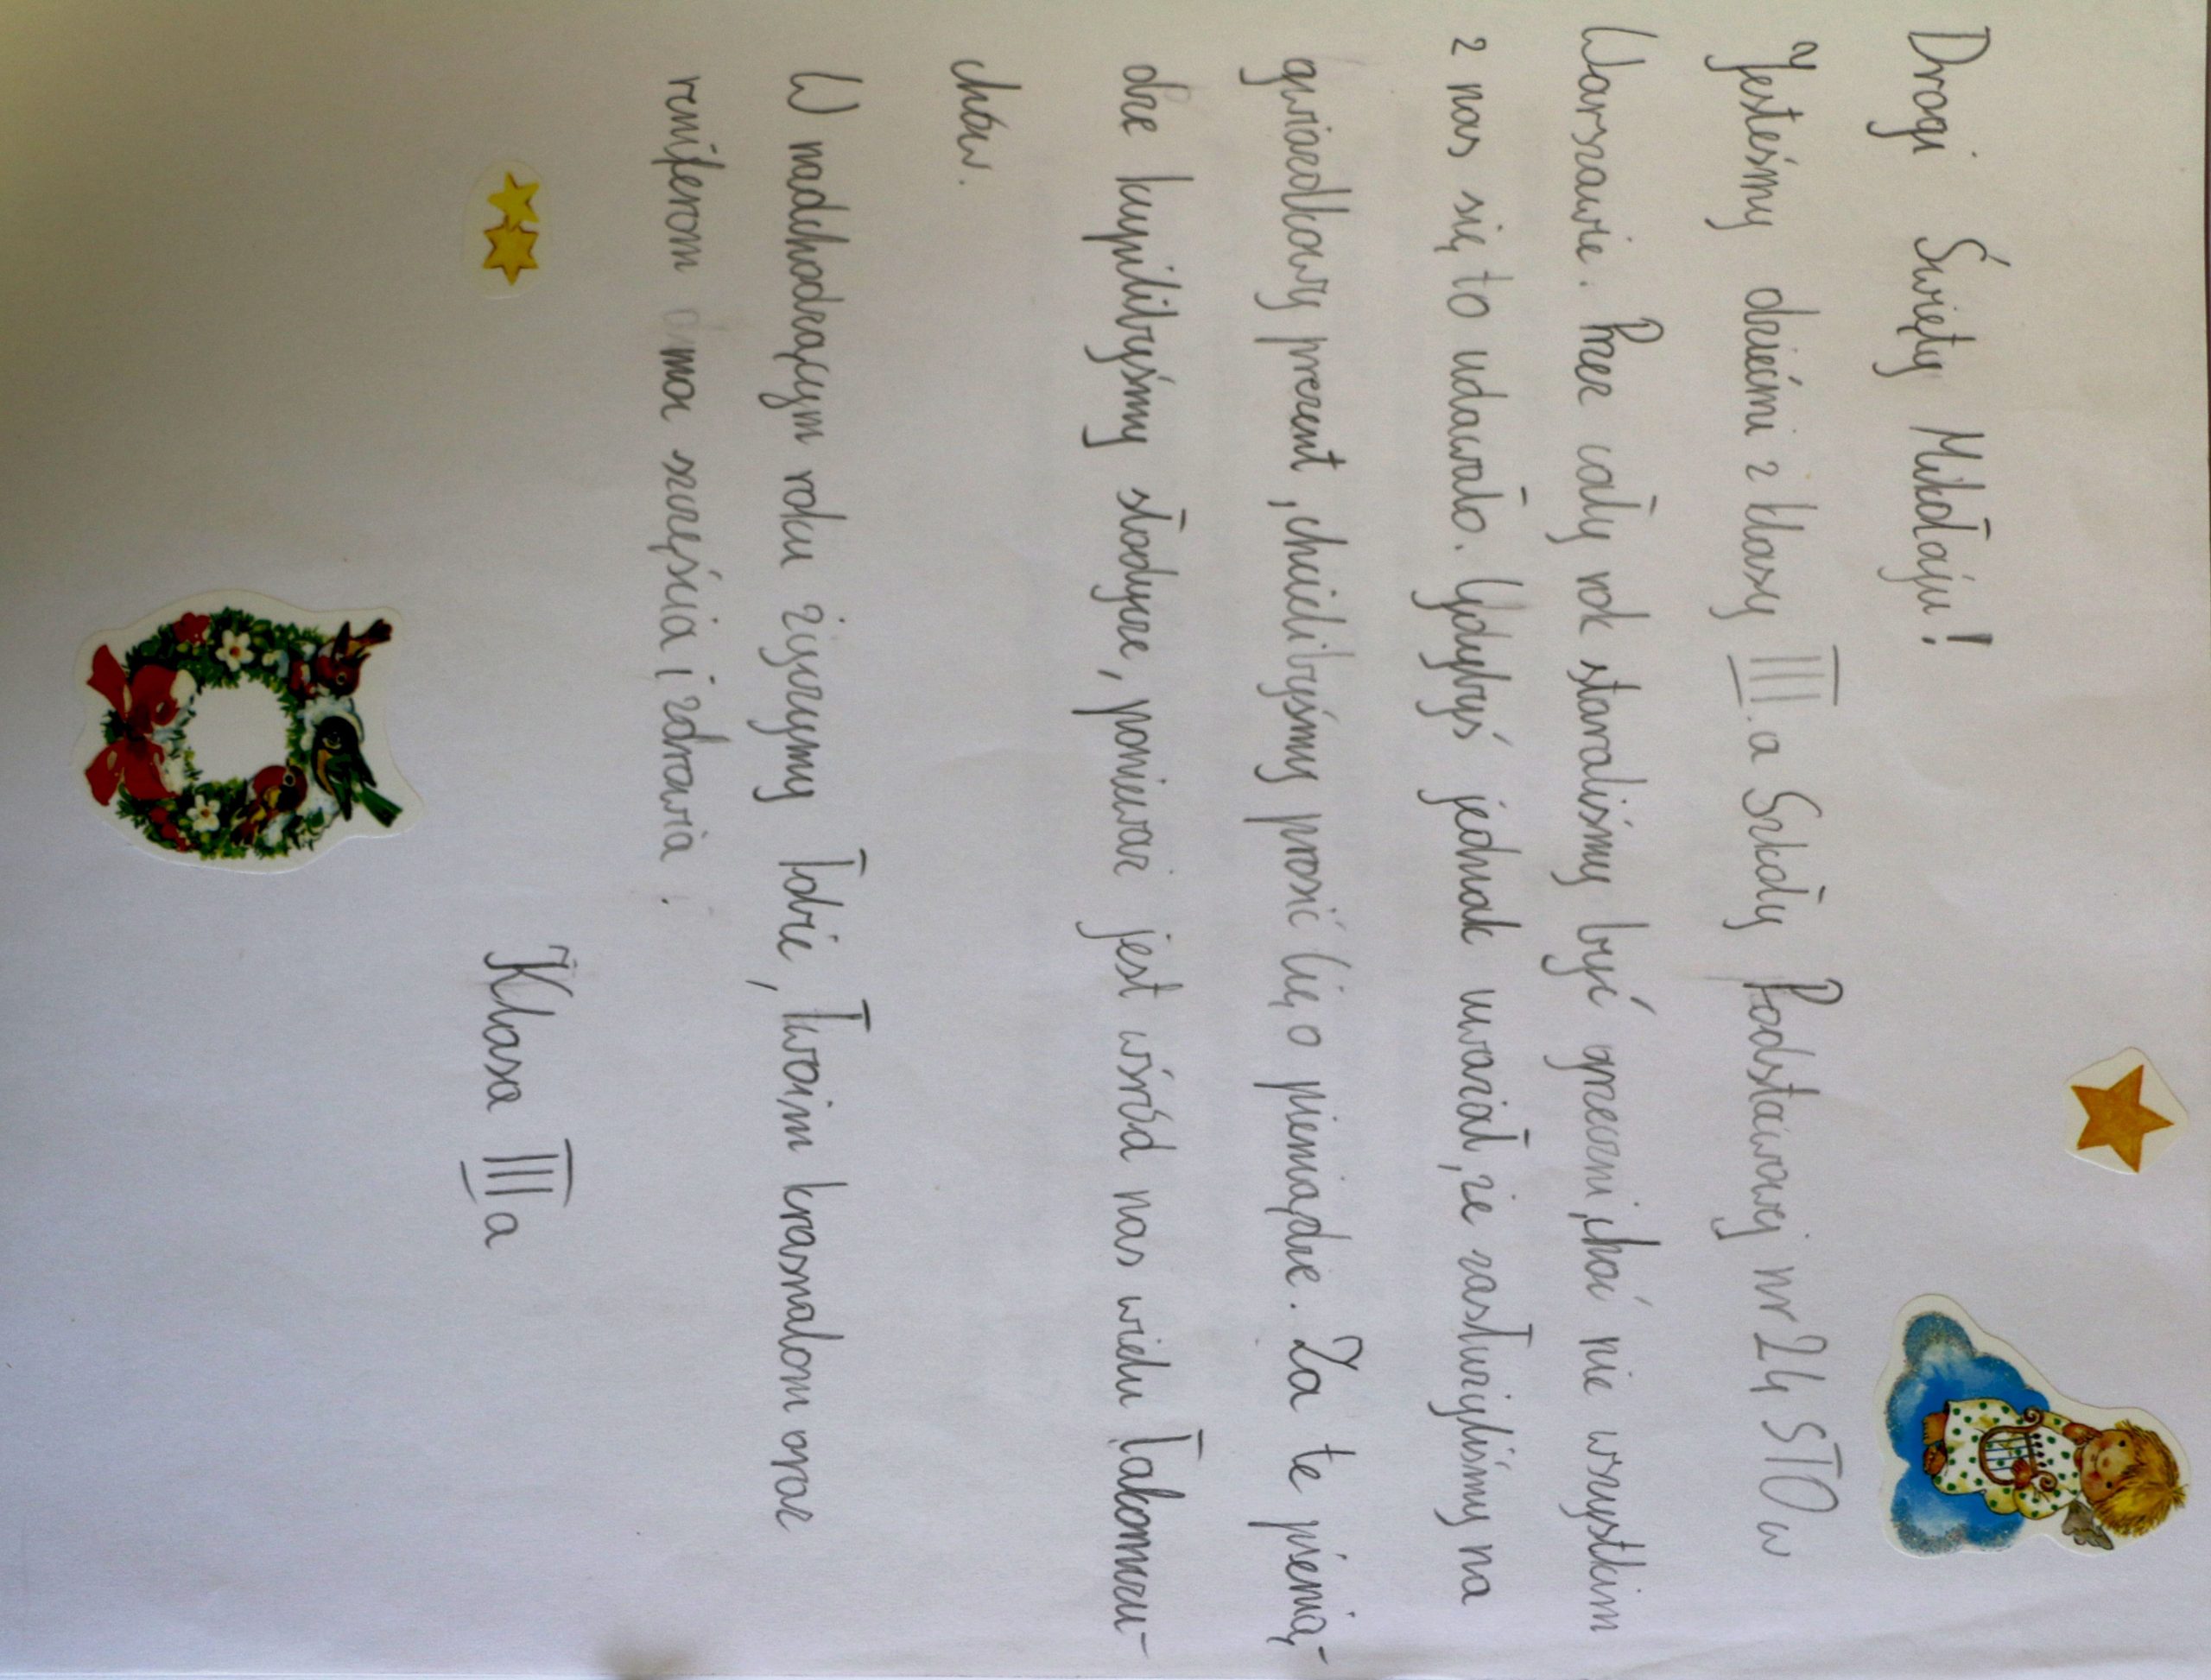 Drogi Święty Mikołaju!
Jesteśmy dziećmi z klasy III.a Szkoły Podstawowej nr 24 STO w
Warszawie. Przez cały rok staraliśmy być grzeczni, choć nie wszystkim
z nas się to udawało. Gdybyś jednak uważał, że zasłużyliśmy na
gwiazdkowy prezent, chcielibyśmy prosić Cię o pieniądze. Za te pienią-
dze kupilibyśmy słodycze, ponieważ jest wśród nas wielu łakomczu-
chów.
W nadchodzącym roku życzymy Tobie, Twoim krasnalom oraz
reniferom moc szczęścia i zdrowia.
Klasa III a